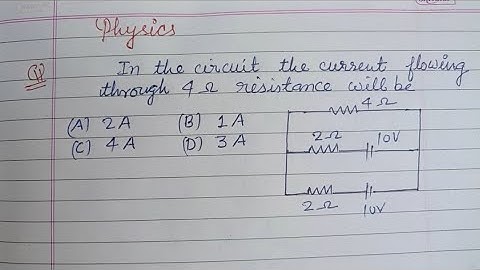 Physics
Q) In the circuit the current flowing
through 4 Ω resistance will be
(A) 2 A (B) 1 A
(C) 4 A (D) 3 A
4 Ω
2 Ω 10V
2 Ω 10V